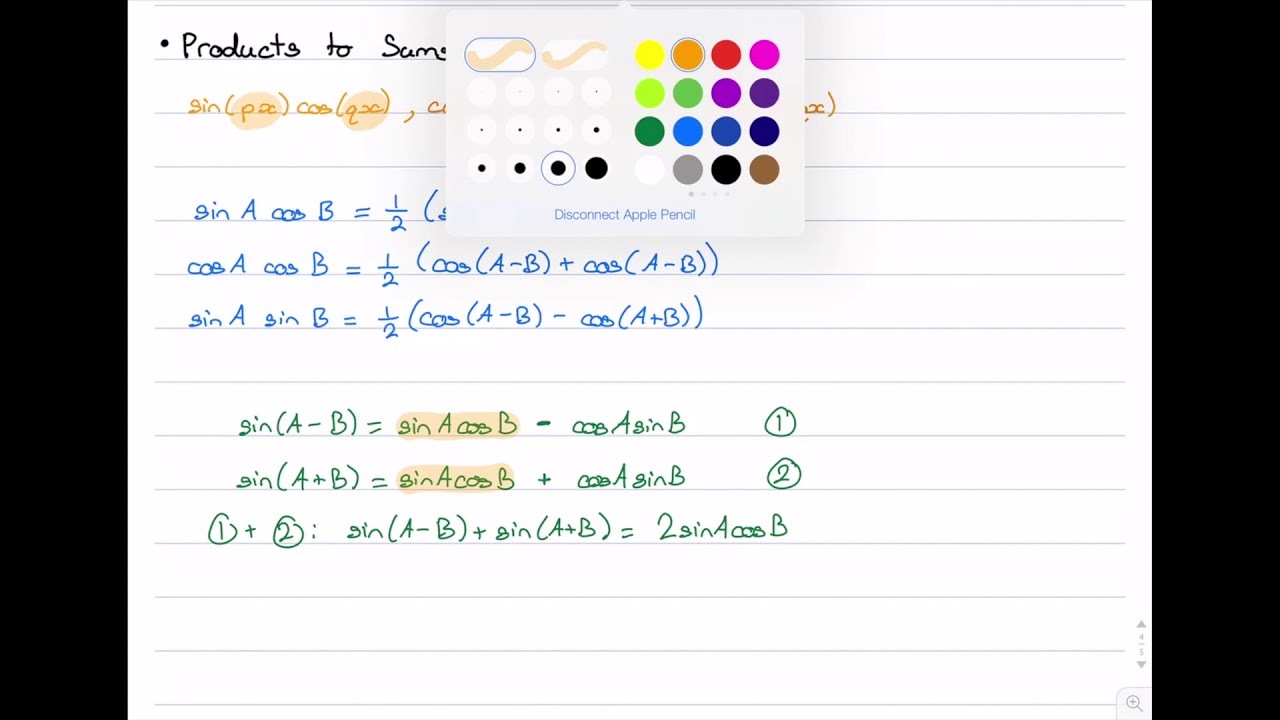 • Products to Sums
sin(px) cos(qx) , co x)
Disconnect Apple Pencil
sin A cos B = 1/2 (s
cosA cos B = 1/2 (cos(A-B) + cos(A-B))
sin A sin B = 1/2 (cos(A-B) - cos(A+B))
sin(A-B) = sinAcosB - cosAsinB ①
sin(A+B) = sinAcosB + cosAsinB ②
① + ②: sin(A-B) + sin(A+B) = 2sinAcosB
4
5